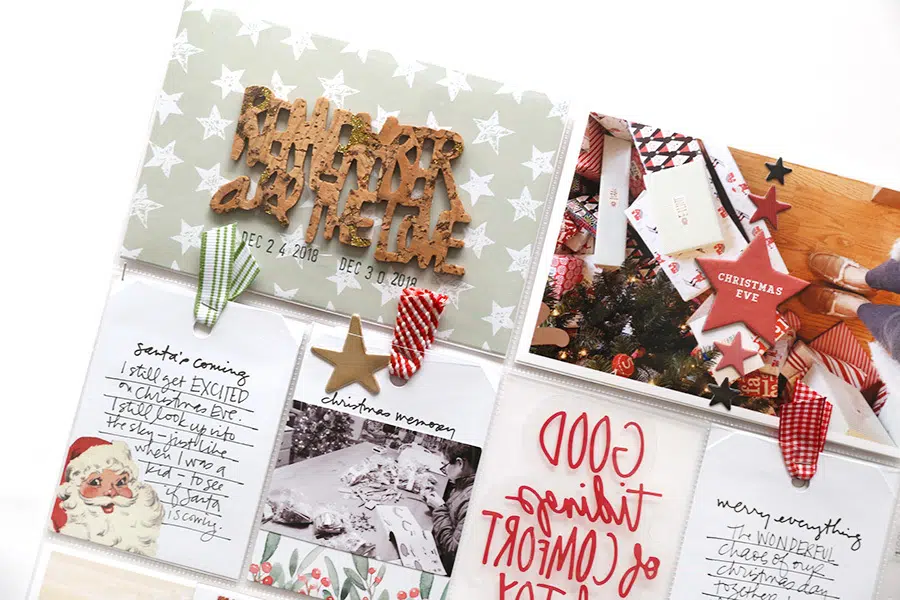 REMEMBER
and THE LOVE
DEC 24 2018
DEC 30 2018
CHRISTMAS
EVE
santa's coming
I still get EXCITED
on Christmas Eve.
I still look up into
the sky - just like
when I was a
kid - to see
if Santa
is coming.
christmas memory
GOOD
tidings
of COMFORT
JOY
merry everything
The WONDERFUL
chaos of our
christmas day
together